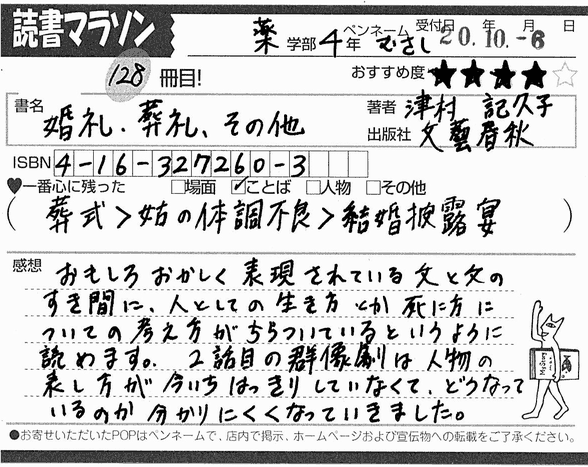 読書マラソン
薬 学部 4 年 ペンネーム むさし 受付日 年 月 日 20.10.-6
128 冊目!
おすすめ度 ★★★★☆
書名 婚礼、葬礼、その他
著者 津村 記久子
出版社 文藝春秋
ISBN 4-16-327260-3
♥一番心に残った □場面 ☑ことば □人物 □その他
(葬式>姑の体調不良>結婚披露宴)
感想 おもしろおかしく表現されている文と文の
すき間に、人としての生き方とか死に方に
ついての考え方がちらついているというように
読めます。2話目の群像劇は人物の
表し方が今いちはっきりしていなくて、どうなって
いるのか分かりにくくなっていきました。
●お寄せいただいたPOPはペンネームで、店内で掲示、ホームページおよび宣伝物への転載をご了承ください。